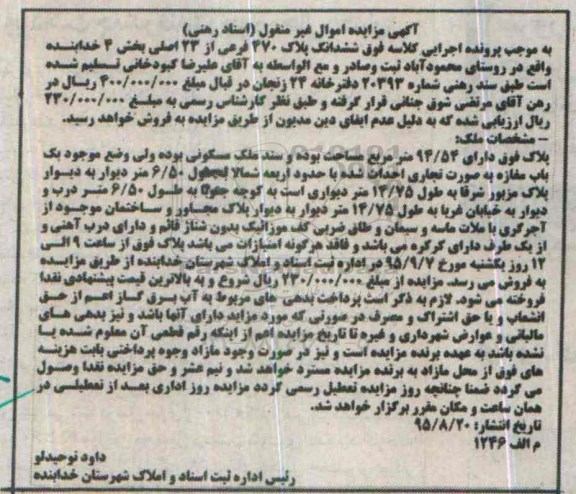 آگهی مزایده اموال غیر منقول (اسناد رهنی)
به موجب پرونده اجرایی کلاسه فوق ششدانگ پلاک ۴۷۰ فرعی از ۲۳ اصلی بخش ۴ خدابنده
واقع در روستای محمودآباد ثبت وصادر و مع الواسطه به آقای علیرضا کبودخانی تسلیم شده
است طبق سند رهنی شماره ۲۰۳۹۳ دفترخانه ۲۴ زنجان در قبال مبلغ ۴۰۰/۰۰۰/۰۰۰ ریال در
رهن آقای مرتضی شوق جنانی قرار گرفته و طبق نظر کارشناس رسمی به مبلغ ۲۳۰/۰۰۰/۰۰۰
ریال ارزیابی شده که به دلیل عدم ایفای دین مدیون از طریق مزایده به فروش خواهد رسید.
– مشخصات ملک:
پلاک فوق دارای ۹۴/۵۴ متر مربع مساحت بوده و سند ملک مسکونی بوده ولی وضع موجود یک
باب مغازه به صورت تجاری احداث شده با حدود اربعه شمالا بطول ۶/۵۰ متر دیوار به دیوار
پلاک مزبور شرقا به طول ۱۴/۷۵ متر دیواری است به کوچه جنوبا به طول ۶/۵۰ متر درب و
دیوار به خیابان غربا به طول ۱۴/۷۵ متر دیوار به دیوار پلاک مجاور و ساختمان موجود از
آجرگری با ملات ماسه و سیمان و طاق ضربی کف موزائیک بدون شناژ قائم و دارای درب آهنی و
از یک طرف دارای کرکره می باشد و فاقد هرگونه امتیازات می باشد پلاک فوق از ساعت ۹ الی
۱۲ روز یکشنبه مورخ ۹۵/۹/۷ در اداره ثبت اسناد و املاک شهرستان خدابنده از طریق مزایده
به فروش می رسد. مزایده از مبلغ ۲۳۰/۰۰۰/۰۰۰ ریال شروع و به بالاترین قیمت پیشنهادی نقدا
فروخته می شود. لازم به ذکر است پرداخت بدهی های مربوط به آب برق گاز اعم از حق
انشعاب و یا حق اشتراک و مصرف در صورتی که مورد مزاید دارای آنها باشد و نیز بدهی های
مالیاتی و عوارض شهرداری و غیره تا تاریخ مزایده اعم از اینکه رقم قطعی آن معلوم شده یا
نشده باشد به عهده برنده مزایده است و نیز در صورت وجود مازاد وجوه پرداختی بابت هزینه
های فوق از محل مازاد به برنده مزایده مسترد خواهد شد و نیم عشر و حق مزایده نقدا وصول
می گردد ضمنا چنانچه روز مزایده تعطیل رسمی گردد مزایده روز اداری بعد از تعطیلی در
همان ساعت و مکان مقرر برگزار خواهد شد.
تاریخ انتشار: ۹۵/۸/۲۰
م الف ۱۲۴۶
داود توحیدلو
رئیس اداره ثبت اسناد و املاک شهرستان خدابنده